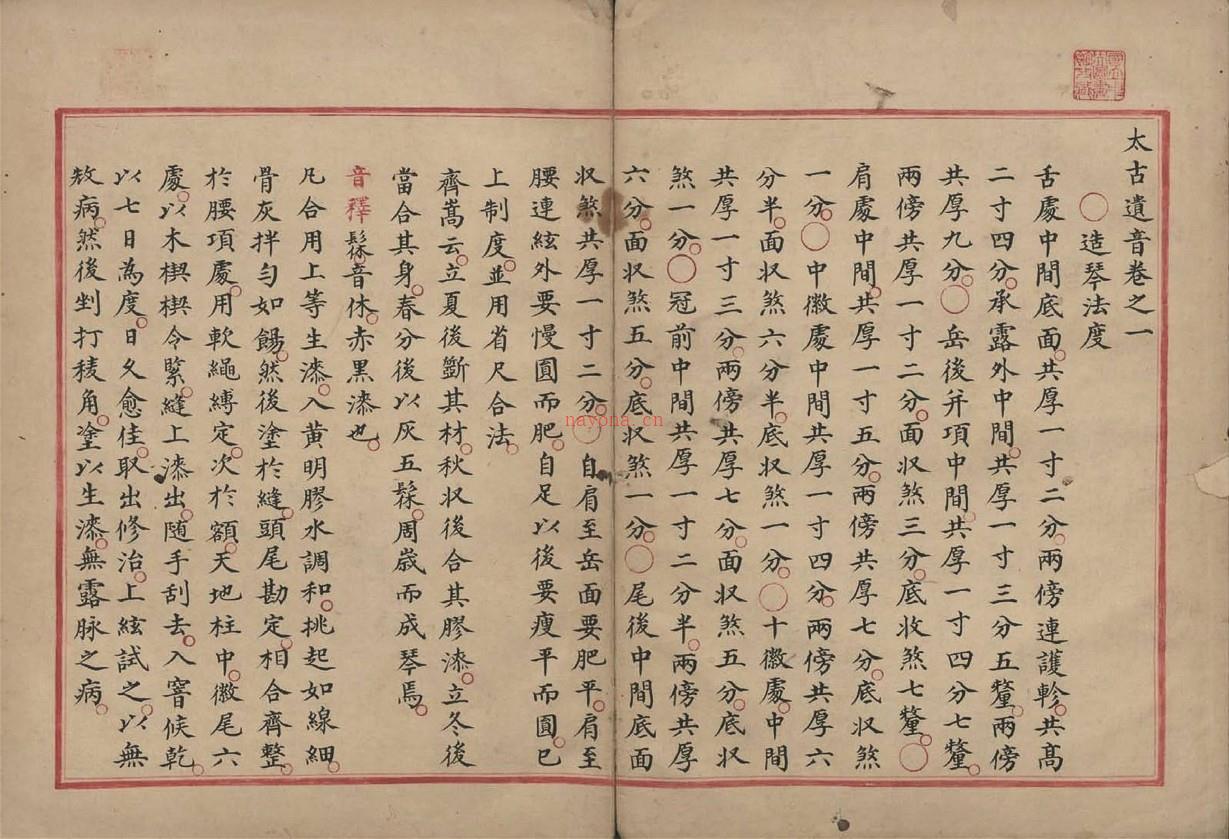 太古遺音卷之一
○造琴法度
舌處中間底面共厚一寸二分兩傍連護軫共高
二寸四分承露外中間共厚一寸三分五釐兩傍
共厚九分○岳後并項中間共厚一寸四分七釐
兩傍共厚一寸二分面収煞三分底收煞七釐○
肩處中間共厚一寸五分兩傍共厚七分底収煞
一分○中徽處中間共厚一寸四分兩傍共厚六
分半面収煞六分半底収煞一分○十徽處中間
共厚一寸三分兩傍共厚七分面収煞五分底収
煞一分○冠前中間共厚一寸二分半兩傍共厚
六分面収煞五分底収煞一分○尾後中間底面
収煞共厚一寸二分○自肩至岳面要肥平肩至
腰連絃外要慢圓而肥自足以後要瘦平而圓已
上制度並用省尺合法
齊嵩云立夏後斵其材秋収後合其膠漆立冬後
當合其身春分後以灰五髹周歲而成琴焉
音釋髹音休赤黑漆也
凡合用上等生漆入黄明膠水調和挑起如線細
骨灰拌勻如餳然後塗於縫頭尾勘定相合齊整
於腰項處用軟繩縛定次於額天地柱中徽尾六
處以木楔楔令緊縫上漆出随手刮去入窨候乾
以七日為度日久愈佳取出修治上絃試之以無
病然後剉打稜角塗以生漆無露脉之病
nayona.cn